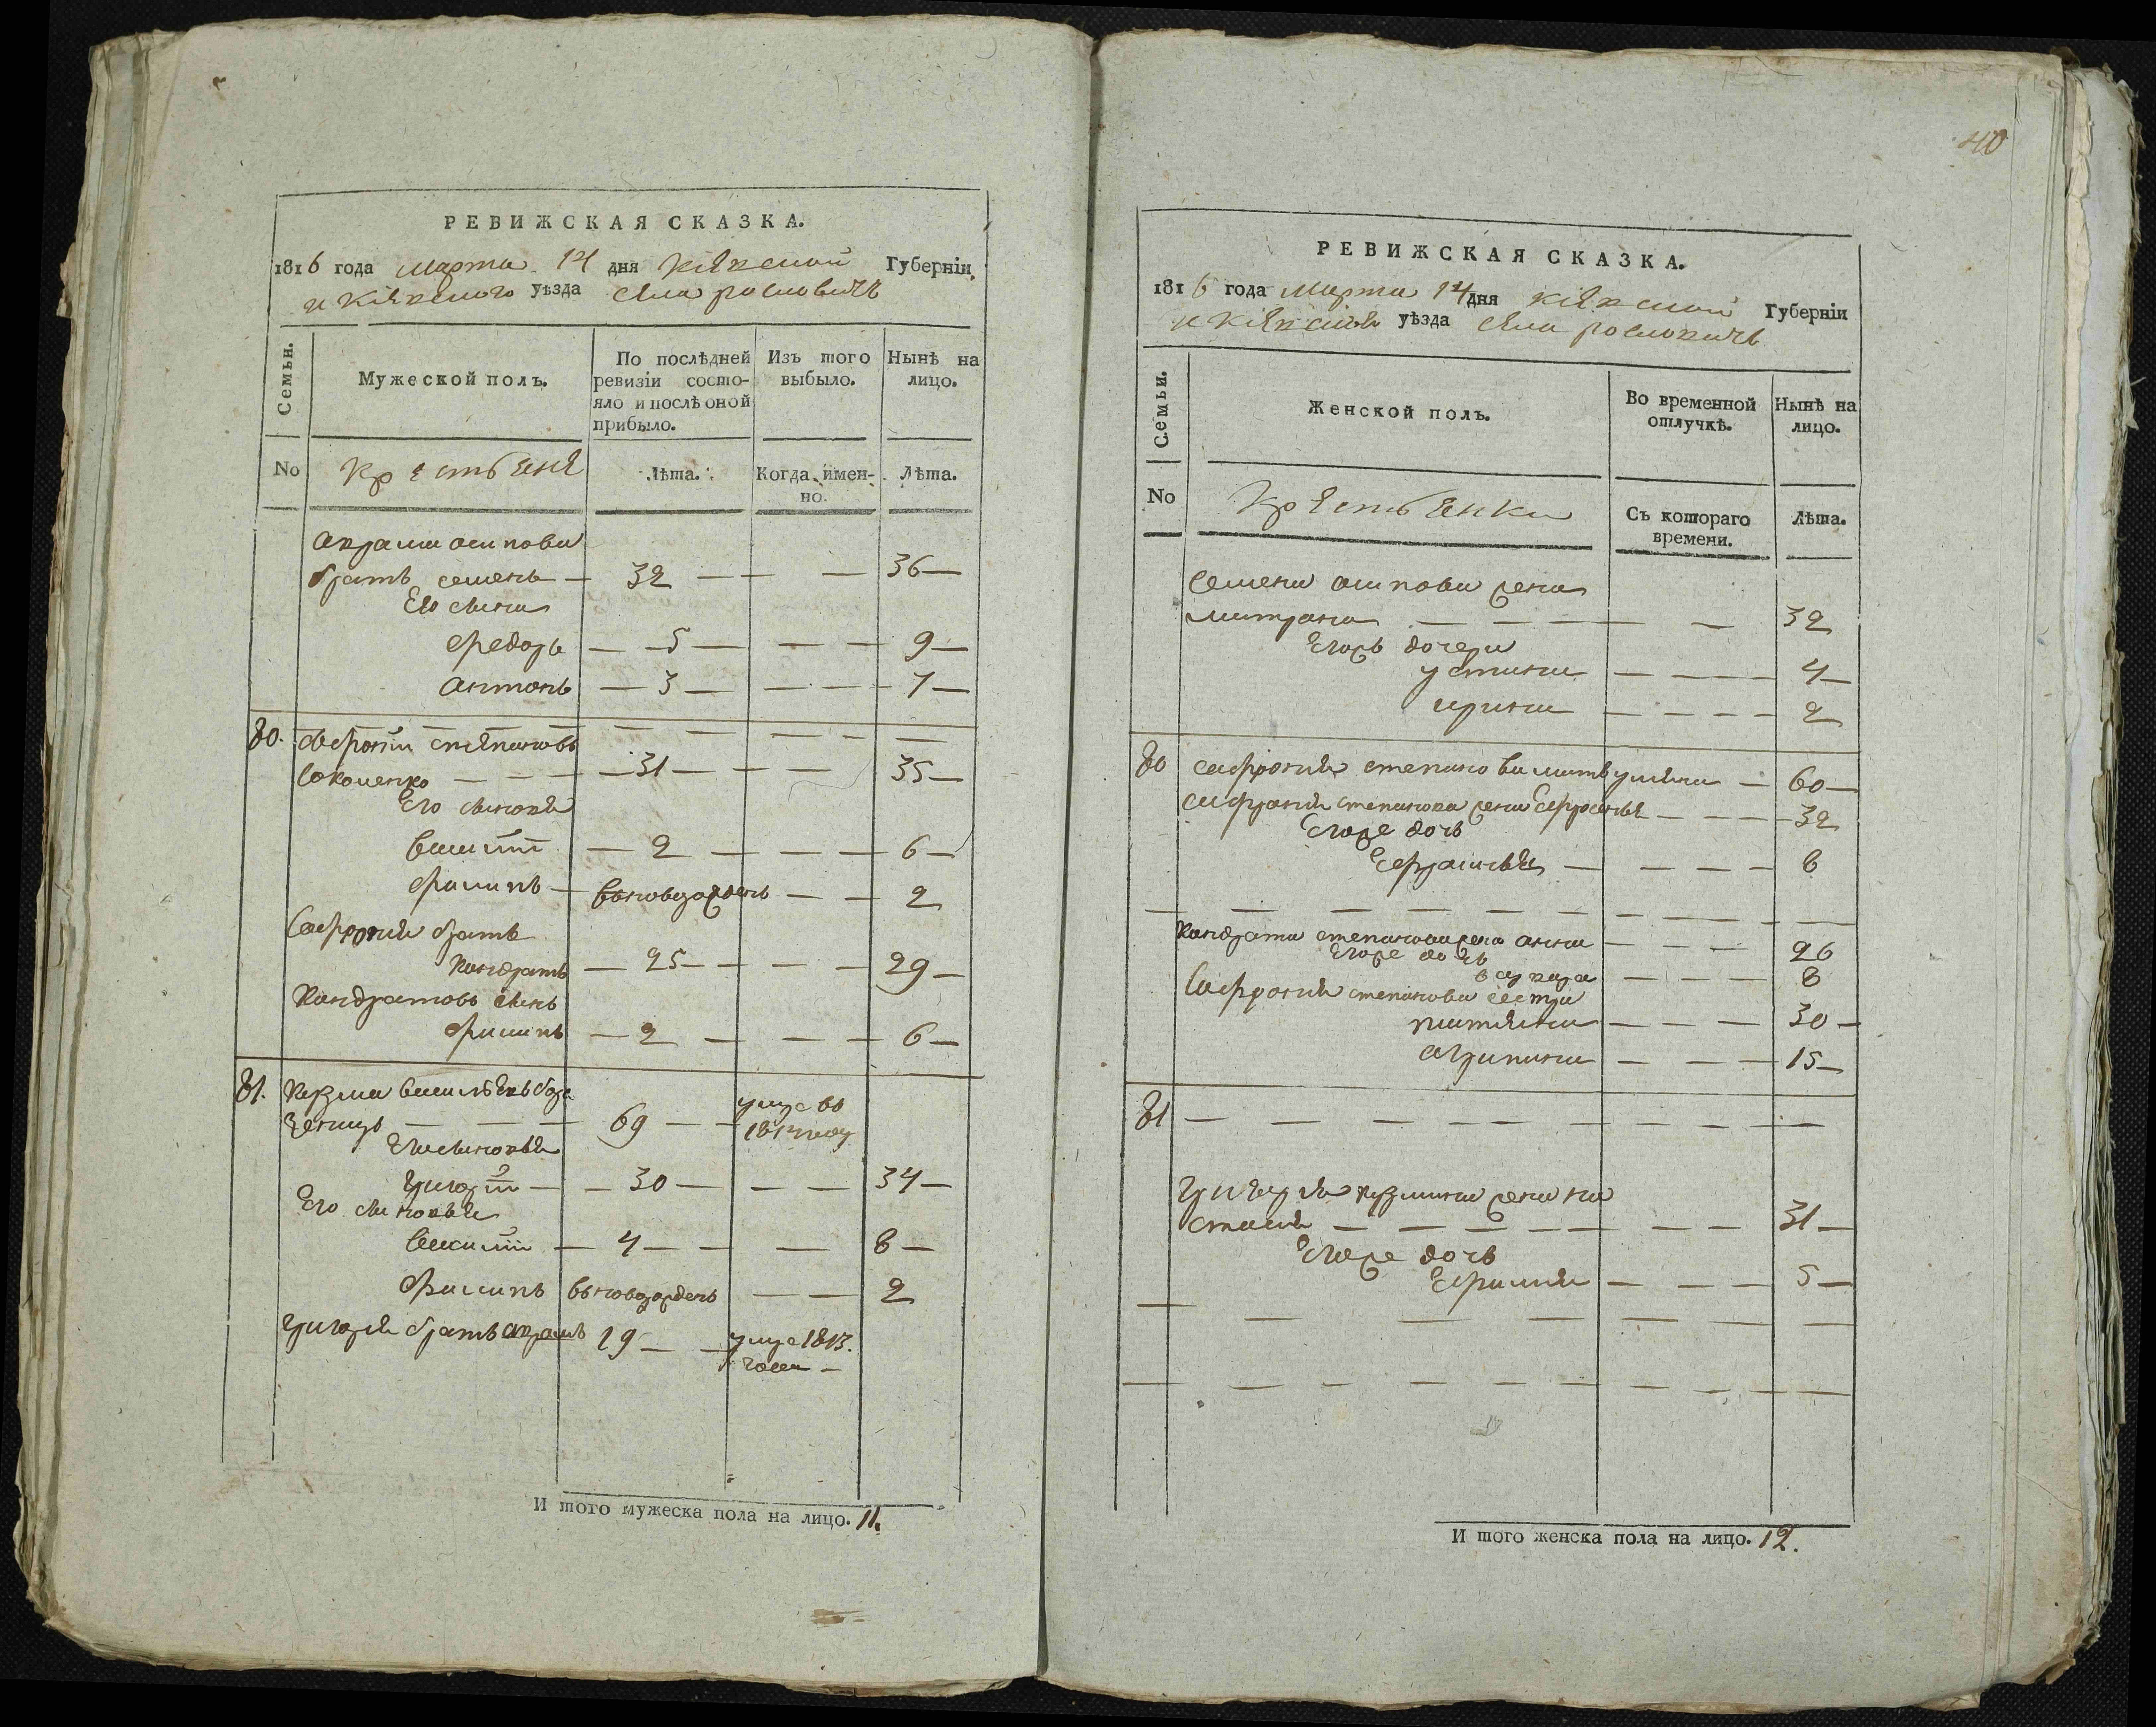 40
РЕВИЖСКАЯ СКАЗКА.
1816 года Марта 14 дня Кіевской Губерніи,
и Кіевского уѣзда села рославичъ
Семьи.
Мужеской полъ.
По послѣдней ревизіи состо-
яло и послѣ оной прибыло.
Изъ того выбыло.
Нынѣ на лицо.
No
Крестьяне
Лѣта.
Когда имен-
но.
Лѣта.
осипова
братъ семенъ — 32 — — — 36 —
Его сыны
Федоръ — 5 — — — 9 —
Антонъ — 3 — — — 7 —
80. Софроній степановъ
— — — 31 — — — 35 —
Его сыновья
Василій — 2 — — — 6 —
Филипъ — вновь рожденъ — — 2
Софронія братъ
Кондратъ — 25 — — — 29 —
Кондратовъ сынъ
Филипъ — 2 — — — 6 —
81. Кузма
— — — 69 — умре въ
1814 году
Его сыновья
Григорій — 30 — — — 34 —
Его сыновья
Василій — 4 — — — 8 —
Филипъ вновь рожденъ — — 2
Григорія братъ Абрамъ 19 — — умре 1813.
И того мужеска пола на лицо. 11.
РЕВИЖСКАЯ СКАЗКА.
1816 года Марта 14 дня Кіевской Губерніи
и Кіевской уѣзда села рославичъ
Семьи.
Женской полъ.
Во временной отлучкѣ.
Нынѣ на лицо.
No
Крестьянки
Съ котораго
времени.
Лѣта.
Семена осипова жена
— — — — — 32
Егожъ дочери
устина — — — — 4 —
ирина — — — — 2
80 Софронія степанова мать ульяна — 60 —
Софронія степанова жена Ефросинья — — — 32
Егоже дочь
— — — — 8
Кондрата степанова жена анна — — — 26
Егоже дочь
варвара — — — 8
Софронія степанова сестра
татьяна — — — 30 —
агрипина — — — 15 —
81 — — — — — — — — — —
Григорія кузмина жена на
стасія — — — — — — — 31 —
Егоже дочь
— — — 5 —
И того женска пола на лицо. 12.